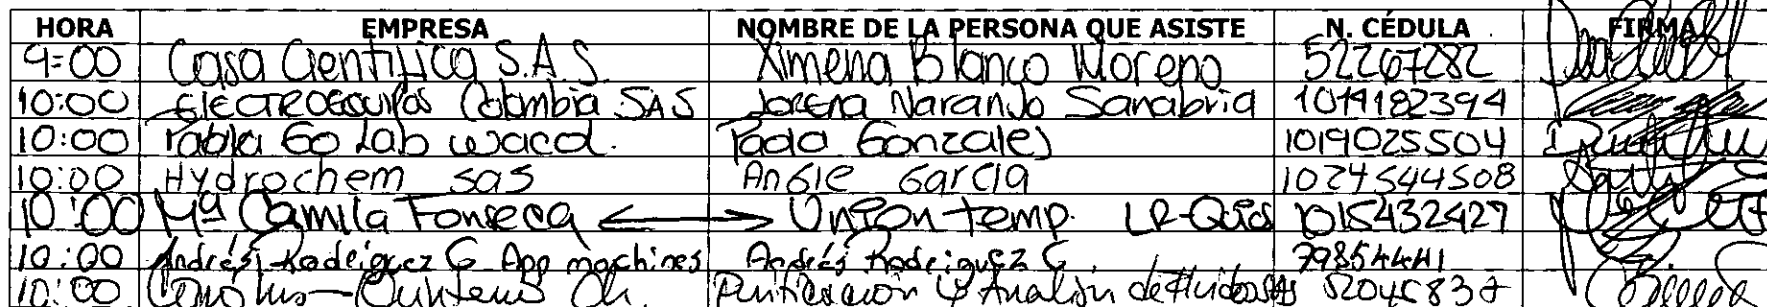 HORA EMPRESA NOMBRE DE LA PERSONA QUE ASISTE N. CÉDULA FIRMA
9:00 Casa Científica S.A.S. Ximena Blanco Moreno 52267282
10:00 Electroequipos Colombia SAS Lorena Naranjo Sanabria 1014182394
10:00 Lab Gonzalez 1019025504
10:00 Hydrochem sas Angie Garcia 1024544508
10:00 Mª Camila Fonseca ← → Union temp. 1015432427
10:00 Andrés Rodriguez G App machines Andrés Rodriguez G. 79854441
10:00 Purificación y Analisis de Fluidos